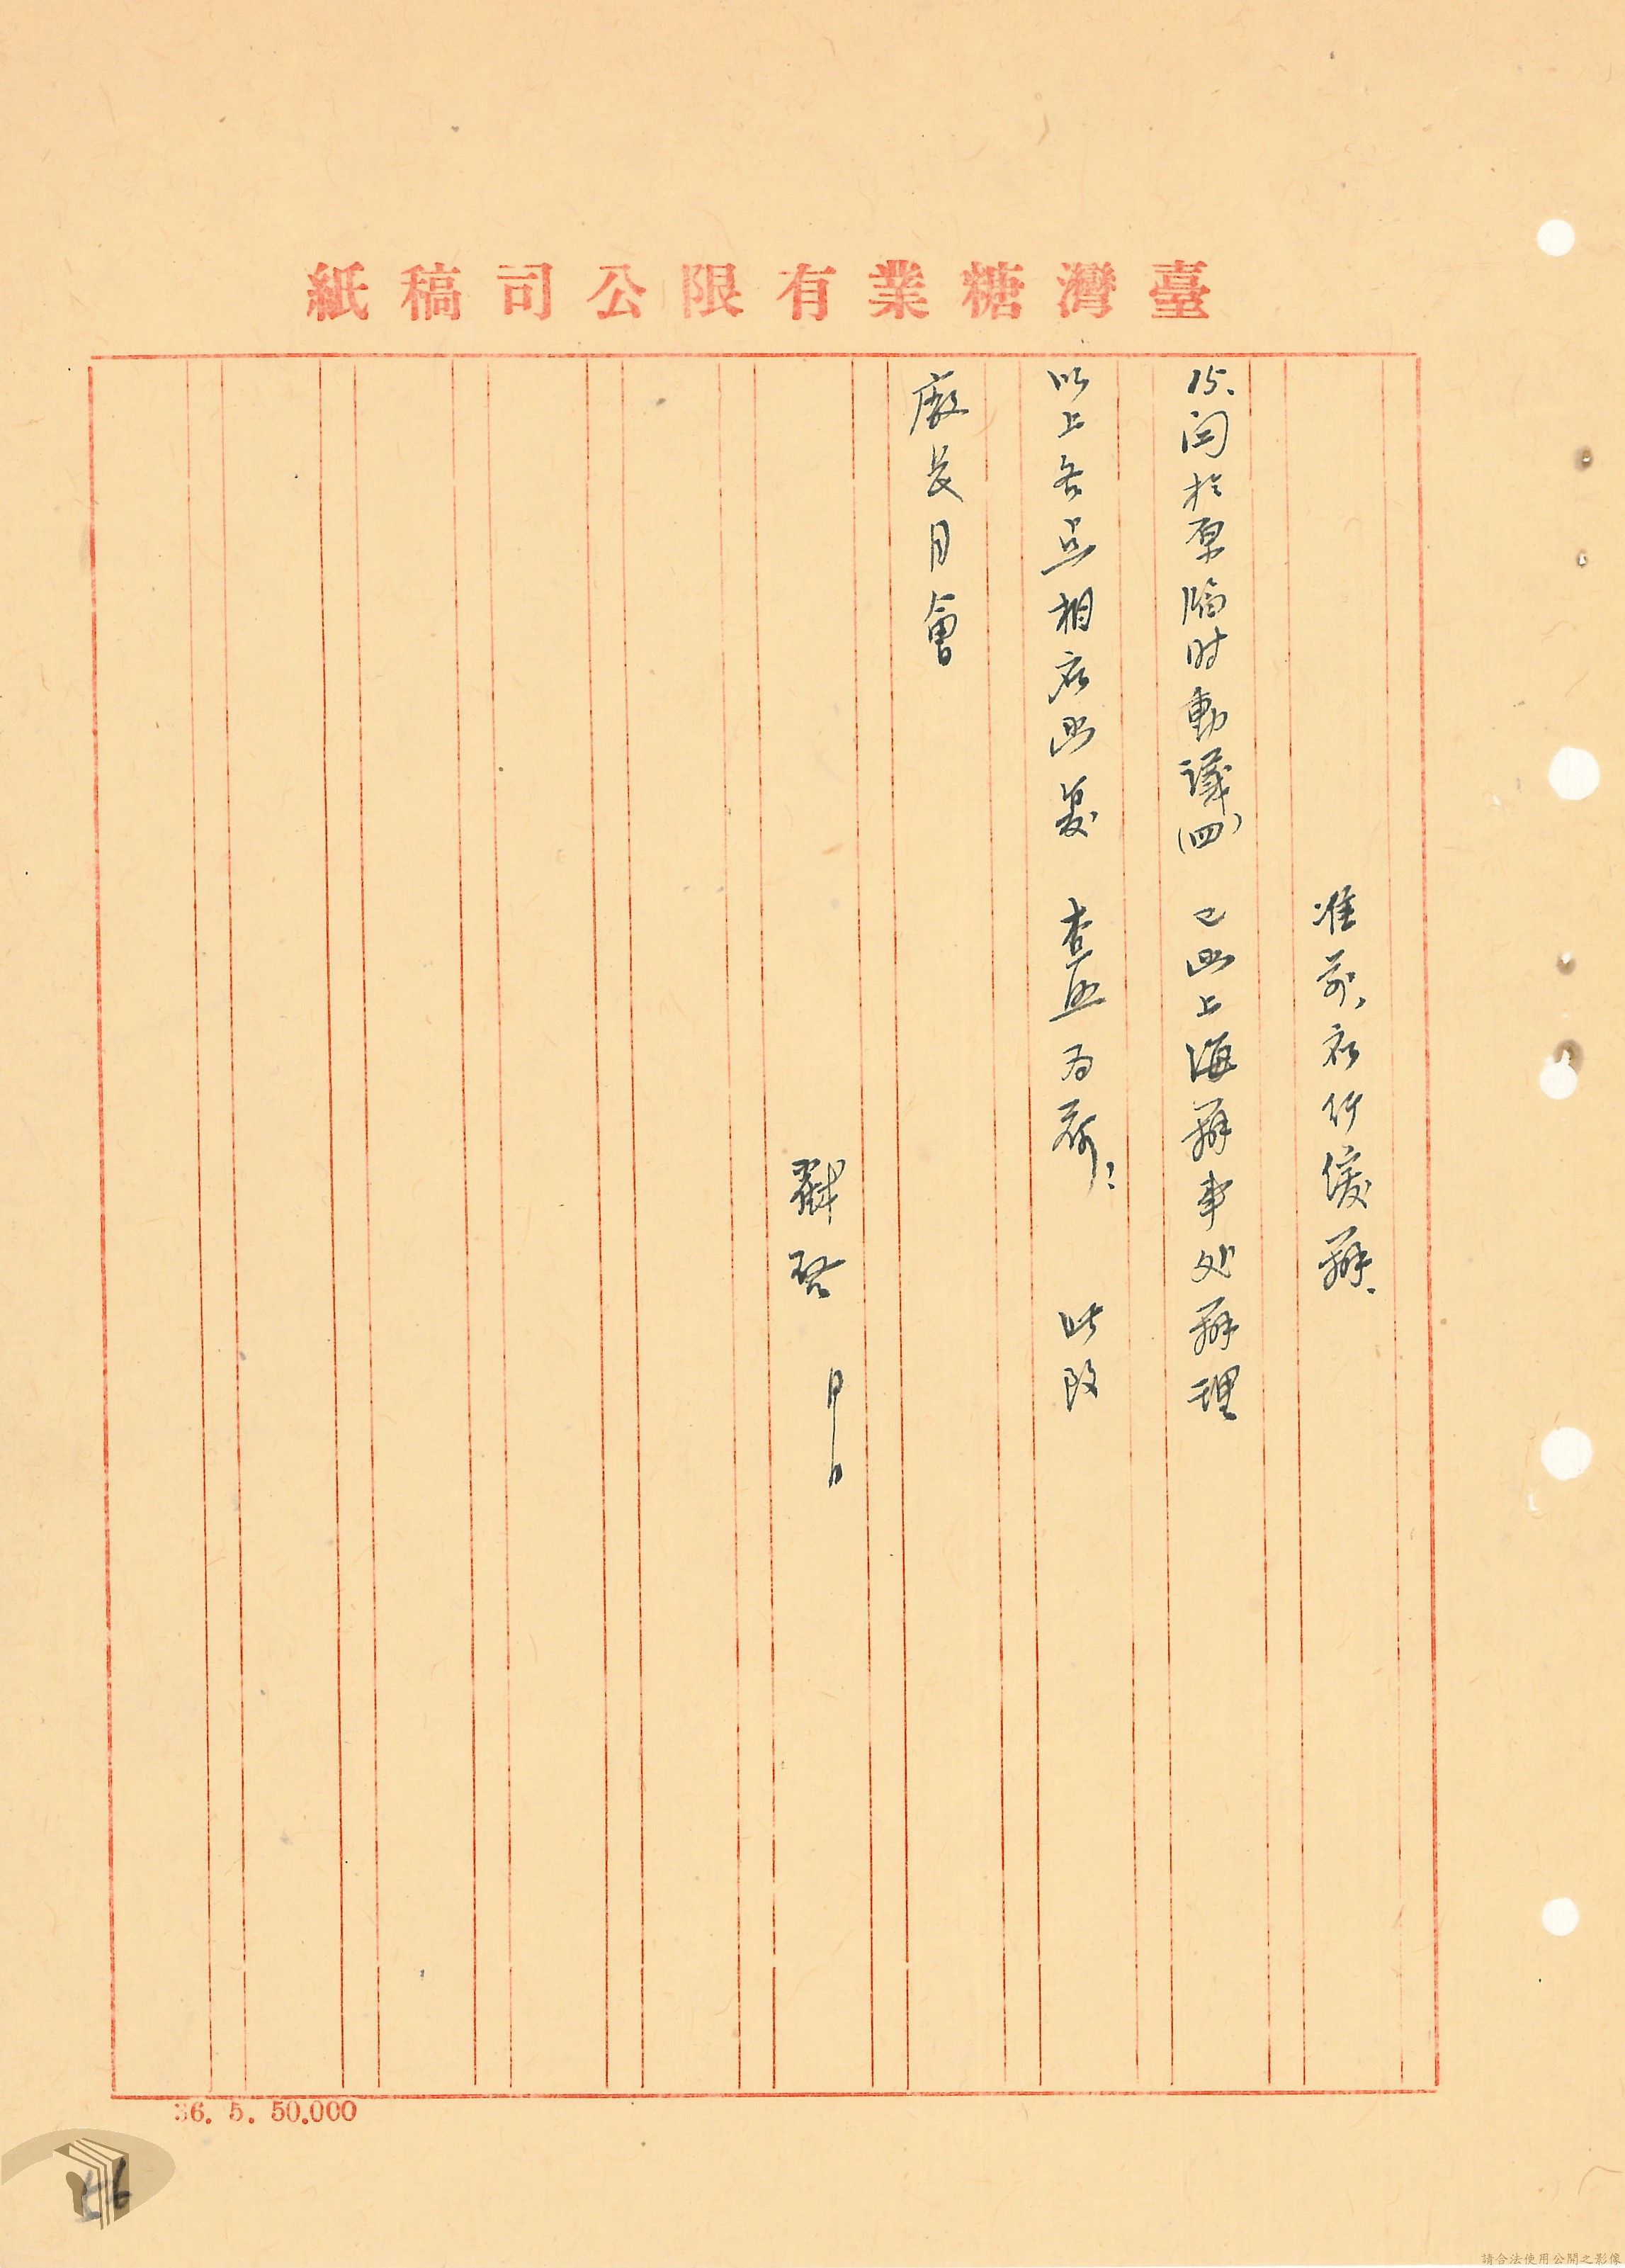 臺灣糖業有限公司稿紙
准前,應行緩辦.
15.関於原臨时動議(四) 已函上海辦事处辦理
以上各点相应函复 查照为荷! 此致
廠長月會
戳啓 月 日
36. 5. 50.000
請合法使用公開之影像